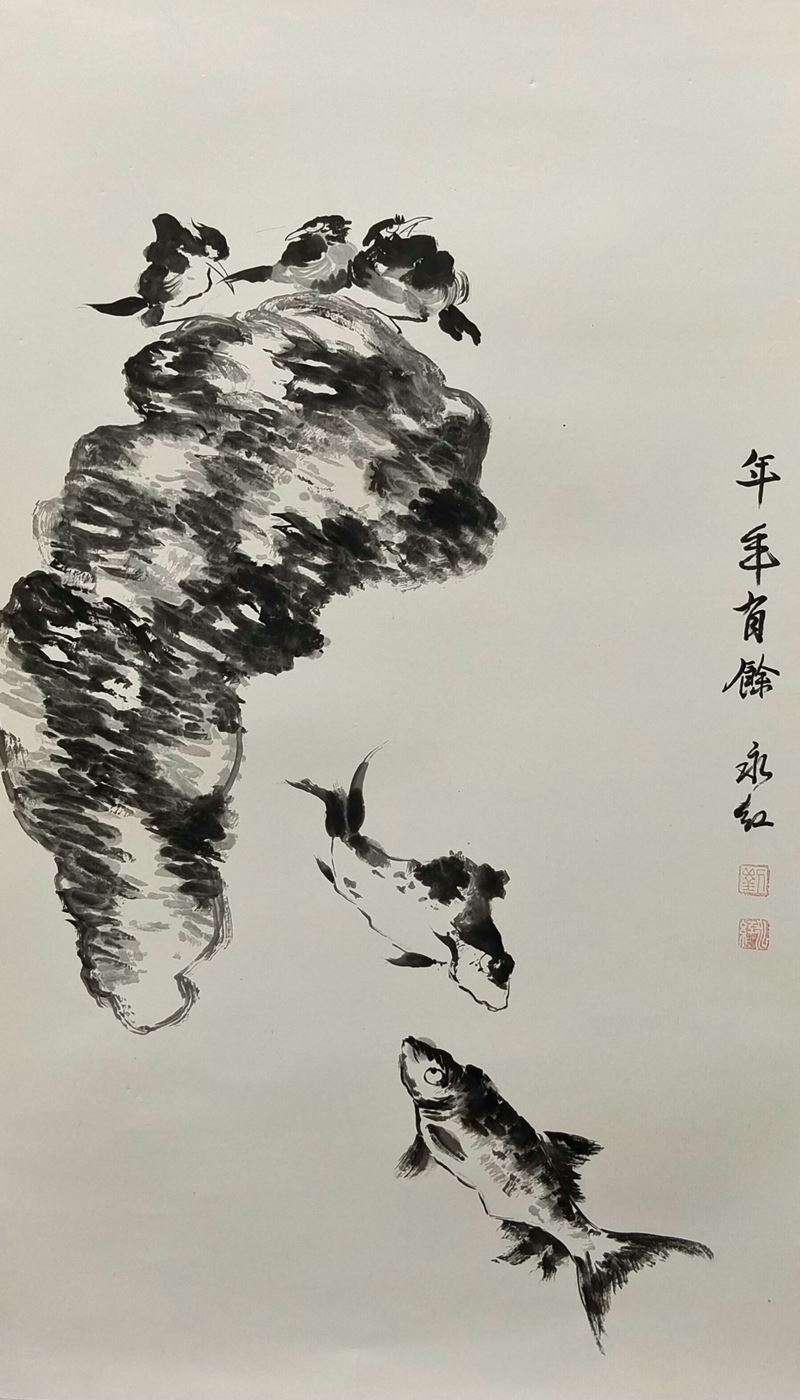 年年有餘 永红